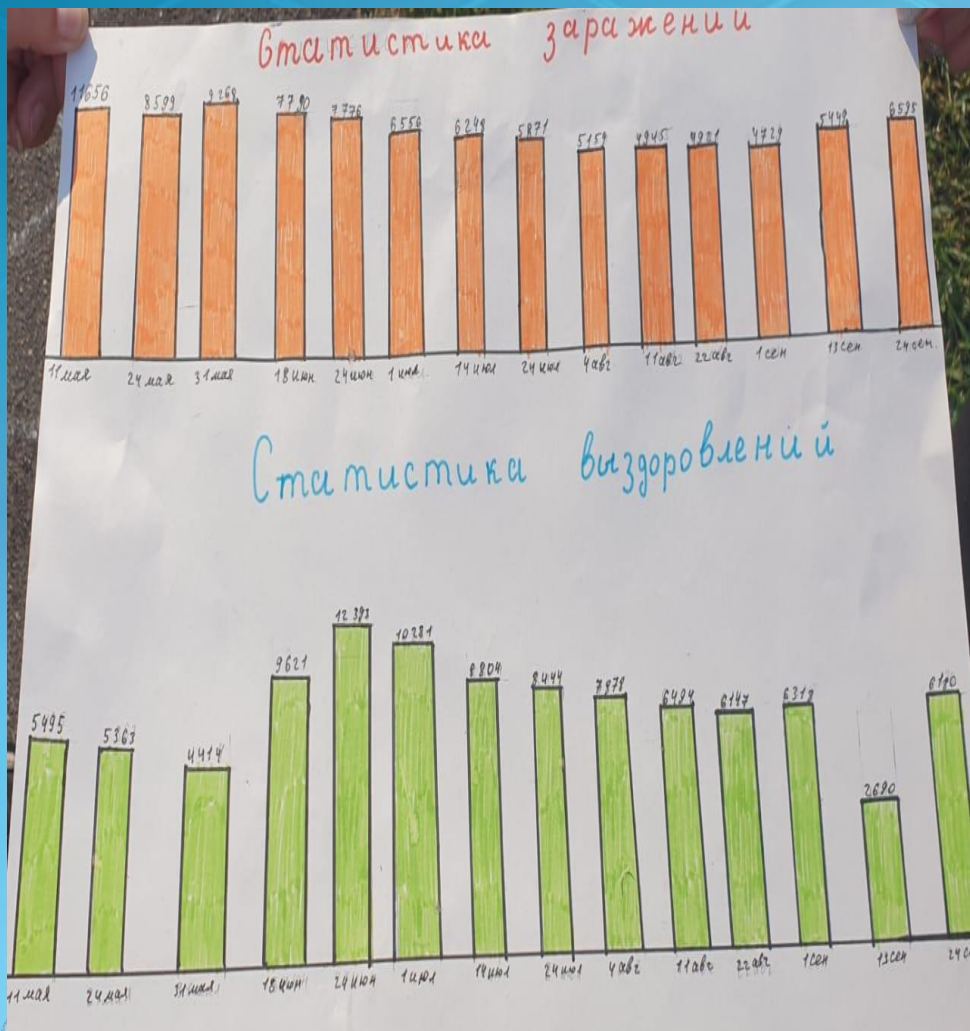 Статистика заражений
11656 8599 9268 7790 7776 6556 6248 5871 5159 4945 4921 4729 5449 6595
11 мая 24 мая 31 мая 18 июн 24 июн 1 июл 14 июл 24 июл 4 авг 11 авг 22 авг 1 сен 13 сен 24 сен.
Статистика выздоровлений
5495 5363 4414 9621 12393 10281 8804 8444 7979 6494 6147 6318 2690 6190
11 мая 24 мая 31 мая 18 июн 24 июн 1 июл 14 июл 24 июл 4 авг 11 авг 22 авг 1 сен 13 сен